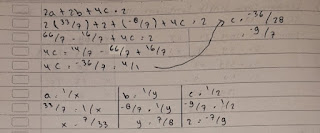 2a + 2b + 4c = 2
2(33/7) + 2 + (-8/7) + 4c = 2
66/7 - 16/7 + 4c = 2
4c = 14/7 - 66/7 + 16/7
4c = -36/7 : 4/1
c = -36/28
-9/7
a = 1/x
33/7 = 1/x
x = 7/33
b = 1/y
-8/7 = 1/y
y = 7/8
c = 1/2
-9/7 = 1/2
2 = -7/9